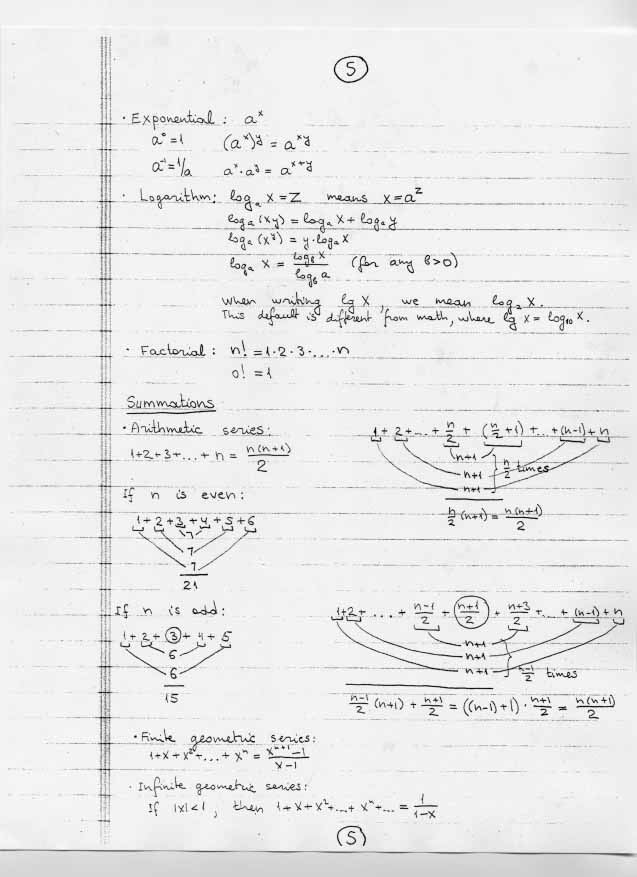 5
· Exponential: aˣ
a⁰=1 (aˣ)ʸ = aˣʸ
a⁻¹=1/a aˣ·aʸ = aˣ⁺ʸ
· Logarithm: logₐ x = z means x=aᶻ
logₐ(xy) = logₐ x + logₐ y
logₐ(xʸ) = y·logₐ x
logₐ x = log_b x / log_b a (for any b>0)
When writing lg x, we mean log₂ x.
This default is different from math, where lg x = log₁₀ x.
· Factorial: n! = 1·2·3·...·n
0! = 1
Summations
· Arithmetic series:
1+2+3+...+n = n(n+1)/2
1+2+...+ n/2 + (n/2+1) +...+(n-1)+n
n+1
n+1
n+1
n/2 times
n/2 (n+1) = n(n+1)/2
If n is even:
1+2+3+4+5+6
7
7
7
21
If n is odd:
1+2+3+4+5
6
6
15
1+2+...+ (n-1)/2 + (n+1)/2 + (n+3)/2 +...+(n-1)+n
n+1
n+1
n+1
(n-1)/2 times
(n-1)/2 (n+1) + (n+1)/2 = ((n-1)+1)·(n+1)/2 = n(n+1)/2
· Finite geometric series:
1+x+x²+...+xⁿ = (xⁿ⁺¹-1)/(x-1)
· Infinite geometric series:
If |x|<1, then 1+x+x²+...+xⁿ+... = 1/(1-x)
(5)